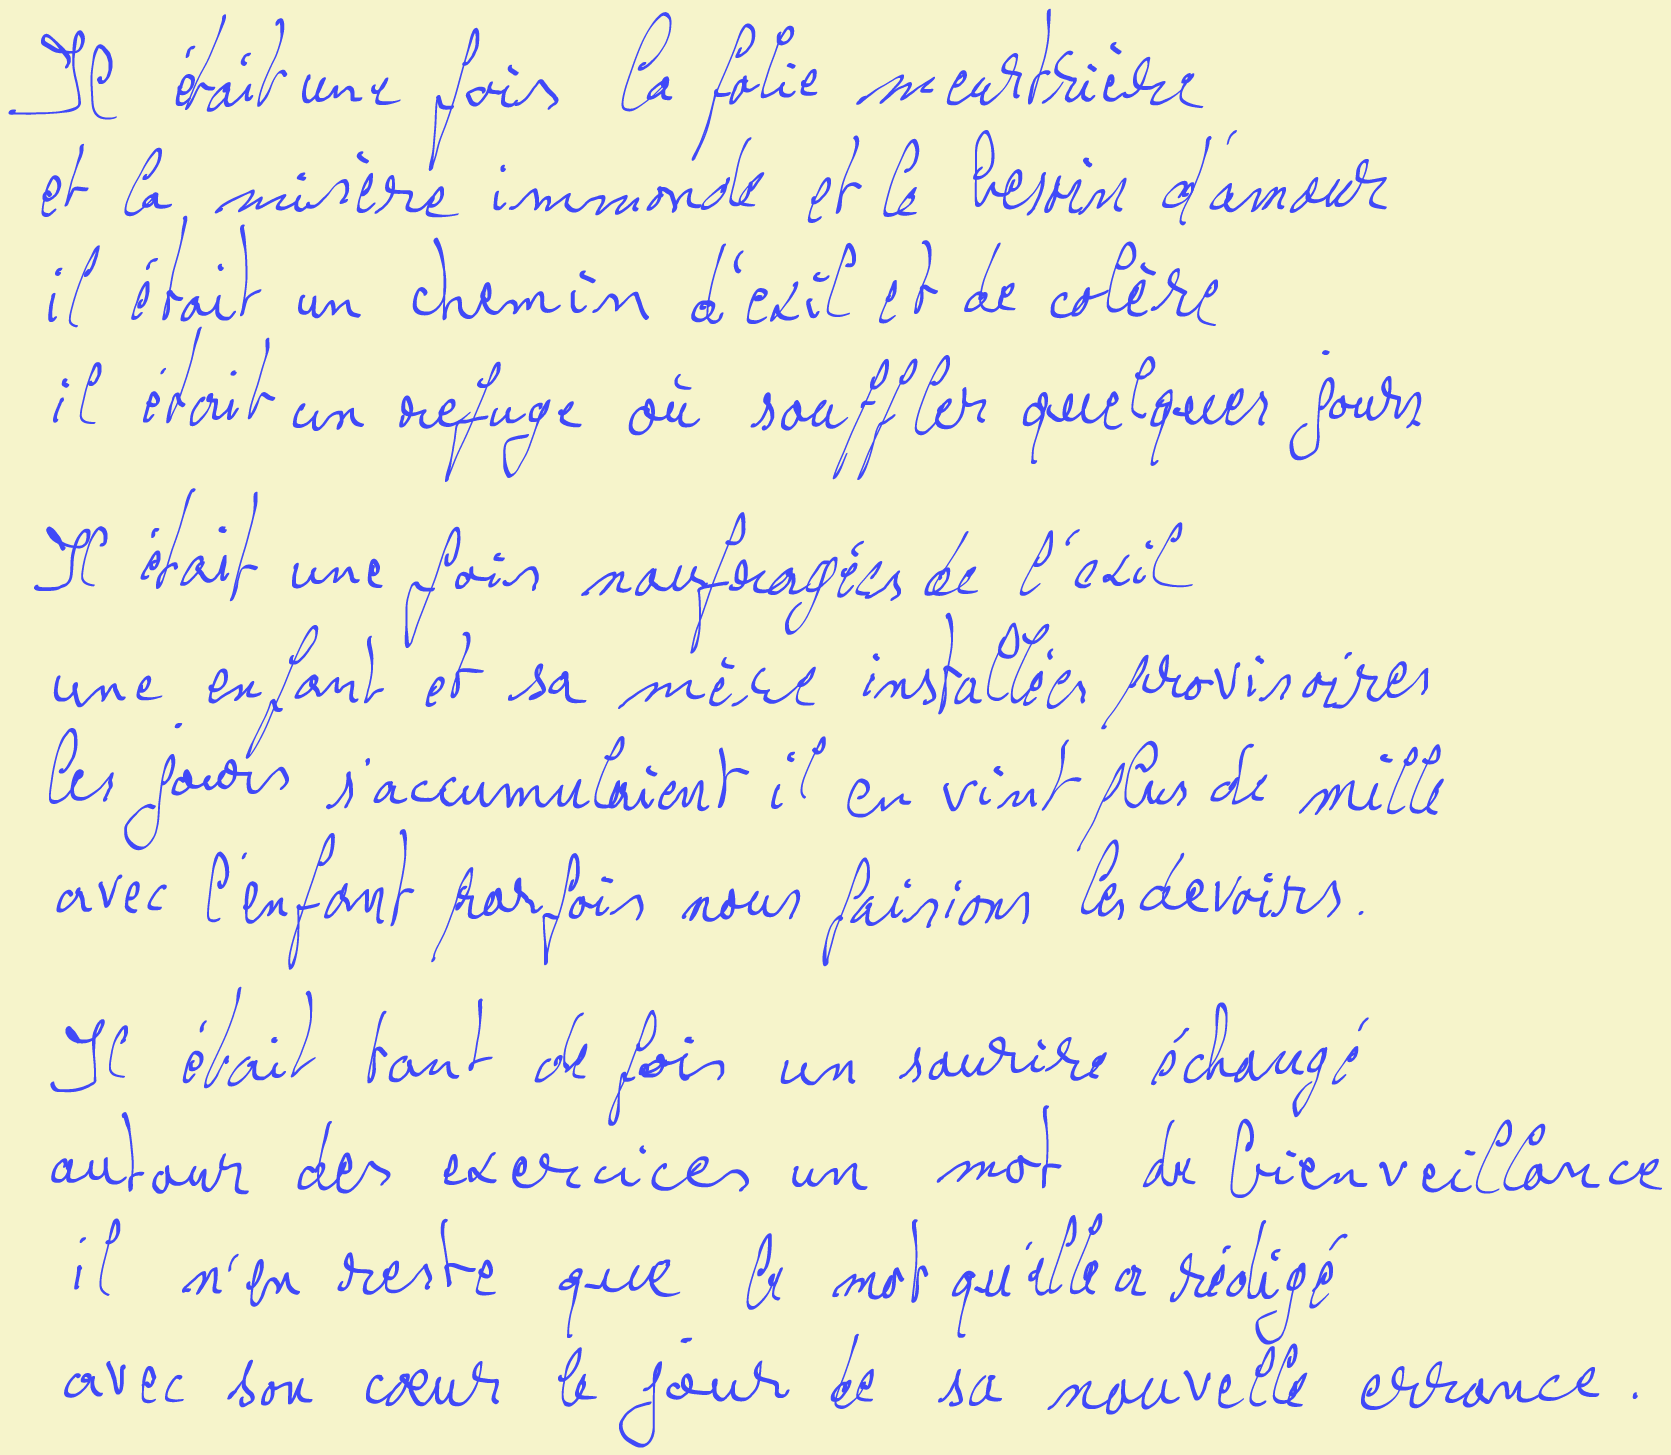 Il était une fois la folie meurtrière
et la misère immonde et le besoin d'amour
il était un chemin d'exil et de colère
il était un refuge où souffler quelques jours
Il était une fois naufragées de l'exil
une enfant et sa mère installées provisoires
les jours s'accumulaient il en vint plus de mille
avec l'enfant parfois nous faisions les devoirs.
Il était tant de fois un sourire échangé
autour des exercices un mot de bienveillance
il n'en reste que le mot qu'elle a rédigé
avec son cœur le jour de sa nouvelle errance.